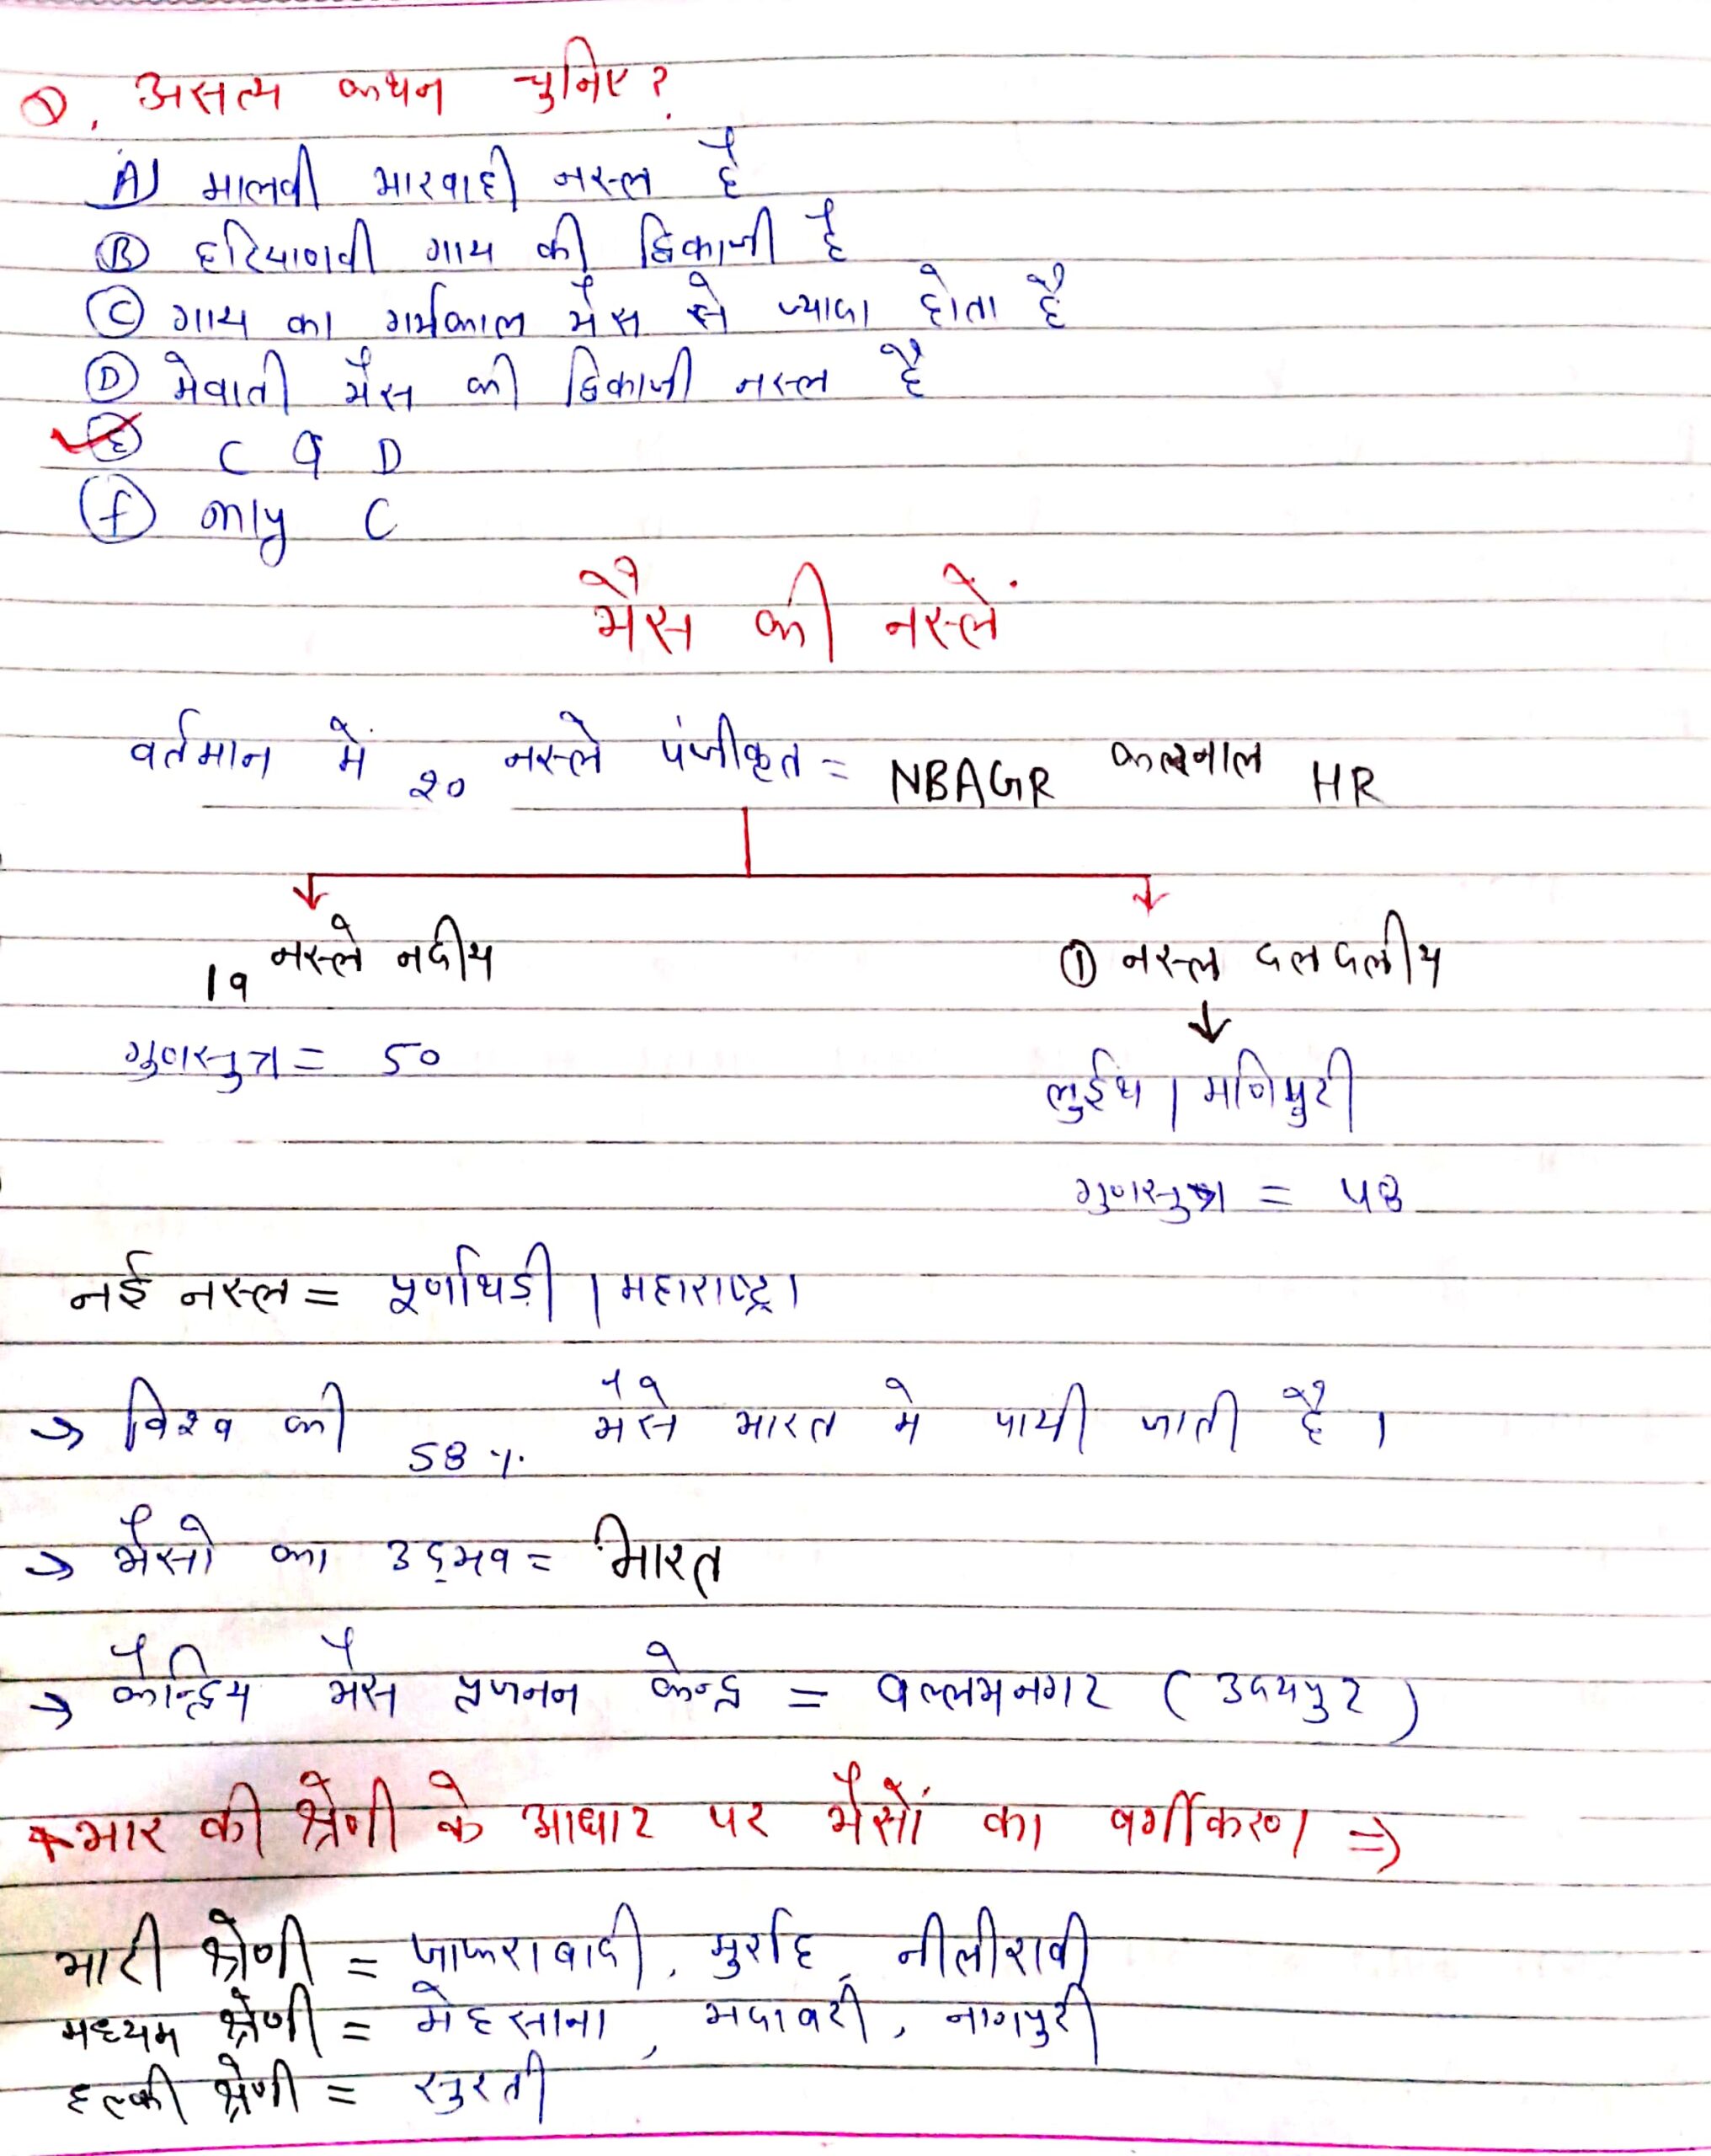 Q. असत्य कथन चुनिए?
A) मालवी भारवाही नस्ल है
(B) हरियाणवी गाय की द्विकाजी है
(C) गाय का गर्भकाल भैंस से ज्यादा होता है
(D) मेवाती भैंस की द्विकाजी नस्ल है
(E) C व D
(f) only C
भैंस की नस्लें
वर्तमान में 20 नस्ले पंजीकृत = NBAGR करनाल HR
19 नस्ले नदीय
① नस्ल दलदलीय
गुणसुत्र = 50
लुईथ / मणिपुरी
गुणसुत्र = 48
नई नस्ल = पूर्णाथिड़ी / महाराष्ट्र।
→ विश्व की 58 % भैंसे भारत मे पायी जाती है ।
→ भैंसो का उद्‌भव = भारत
→ कैन्द्रिय भैंस प्रजनन केन्द्र = वल्लभनगर (उदयपुर)
* भार की श्रेणी के आधार पर भैंसों का वर्गीकरण ⇒
भारी श्रेणी = जाफराबादी, मुर्राह, नीलीरावी
मध्यम श्रेणी = मेहसाना, भदावरी, नागपुरी
हल्की श्रेणी = सुरती